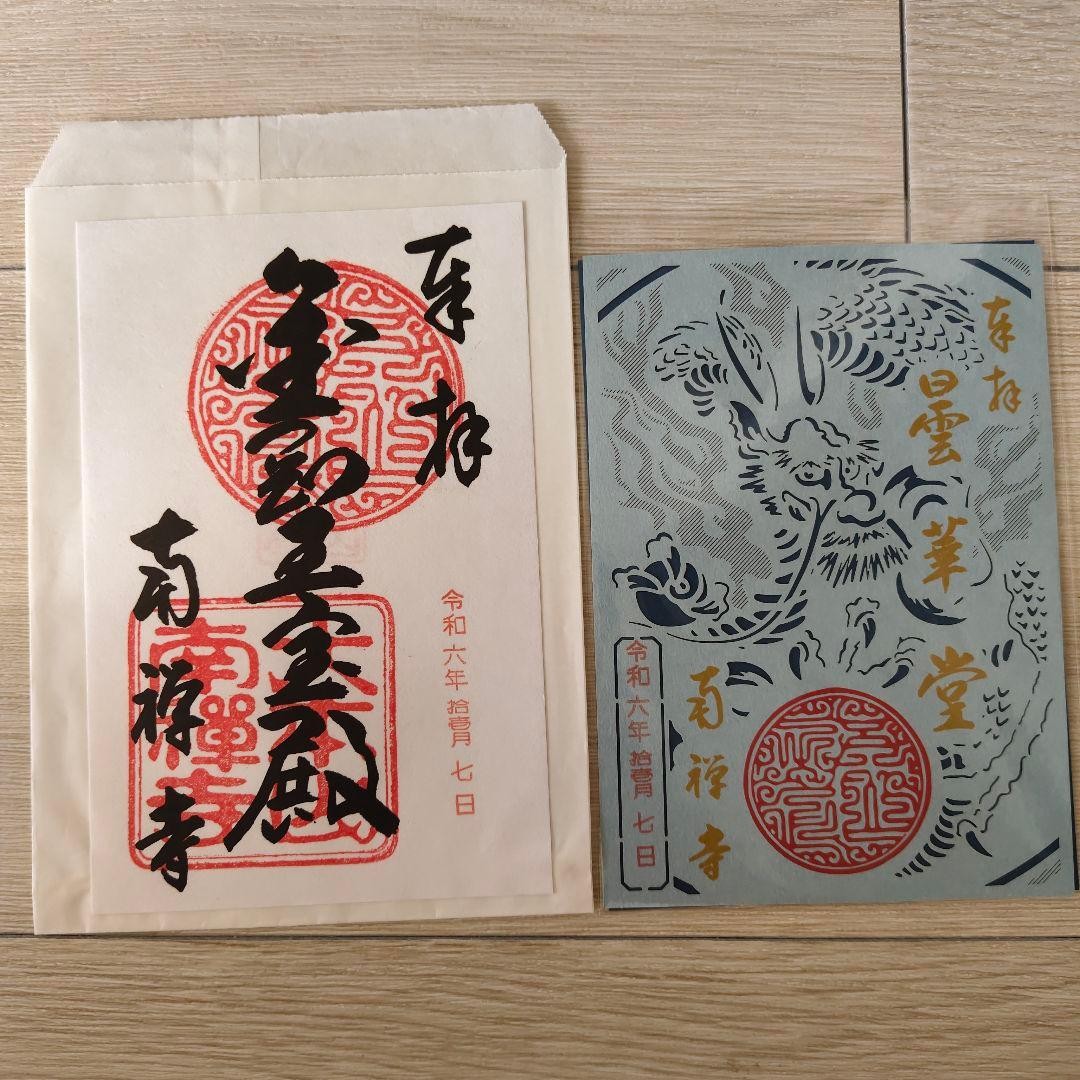 奉拝
令和六年拾壹月七日
金剛王宝殿
南禅寺
南禪寺
奉拝
曇華堂
南禅寺
令和六年拾壹月七日